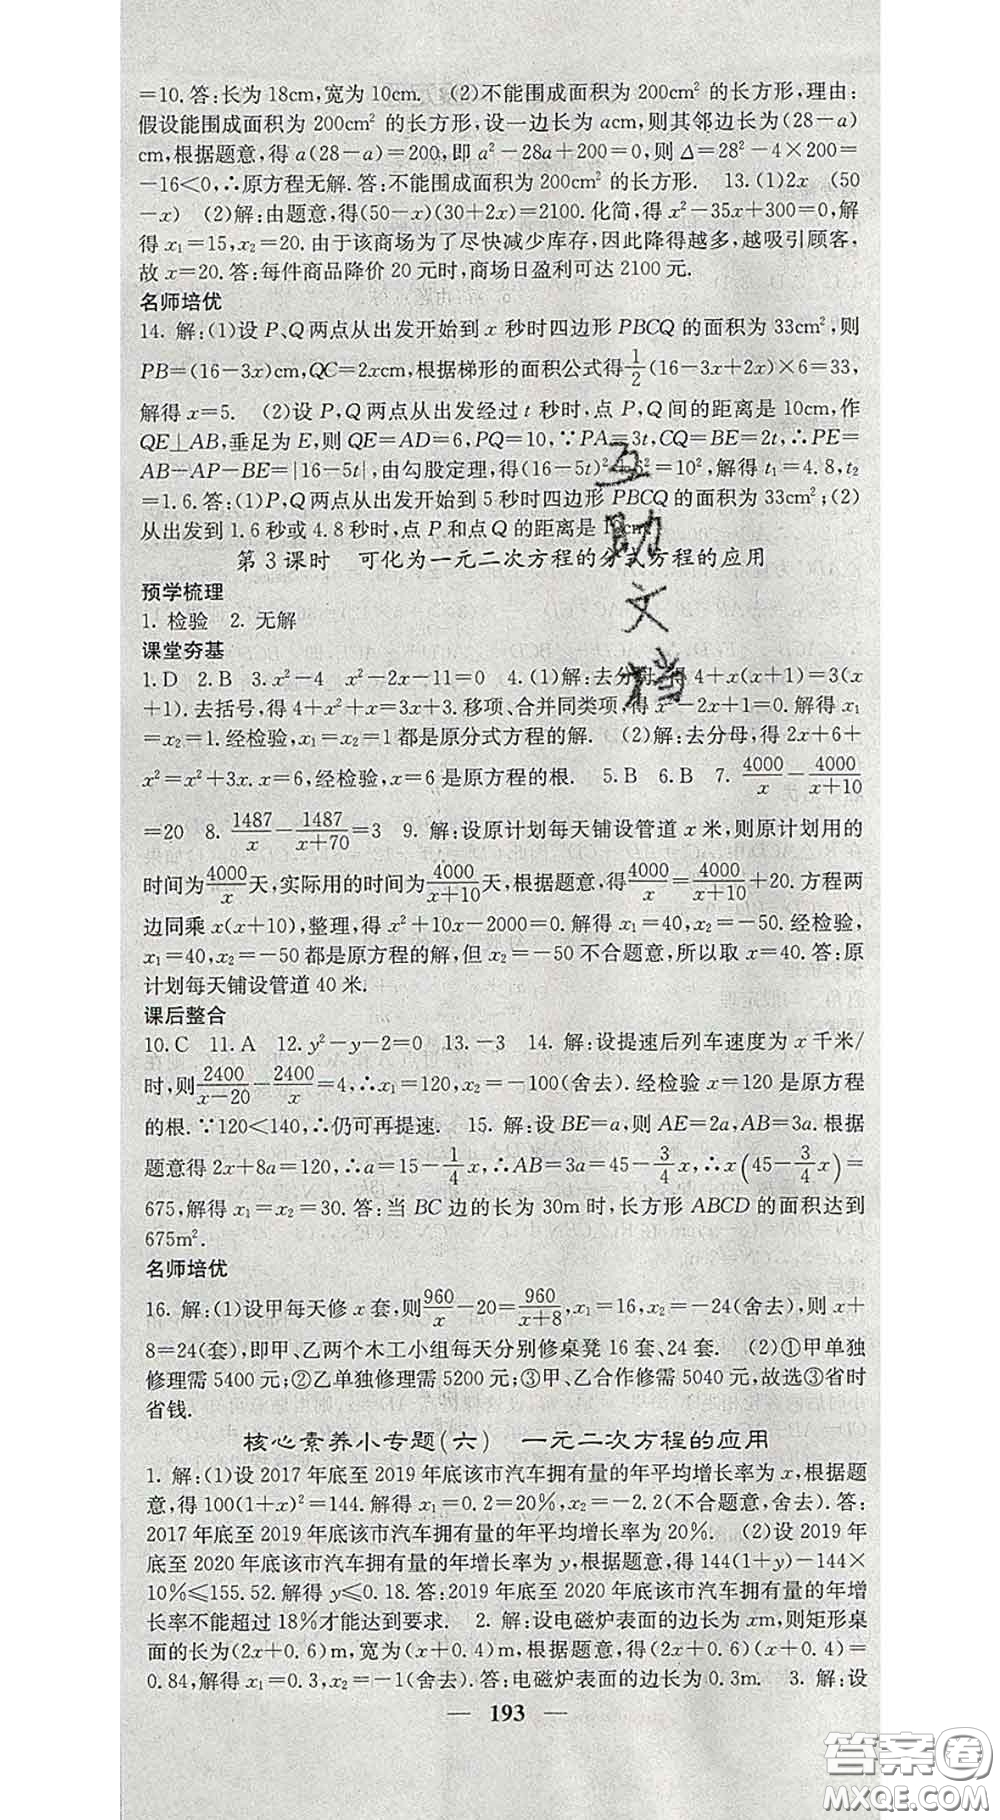 =10.答:长为18cm,宽为10cm. (2)不能围成面积为200cm²的长方形,理由:
假设能围成面积为200cm²的长方形,设一边长为acm,则其邻边长为(28-a)
cm,根据题意,得a(28-a)=200,即a²-28a+200=0,则Δ=28²-4×200=
-16<0,∴原方程无解.答:不能围成面积为200cm²的长方形. 13.(1)2x (50
-x) (2)解:由题意,得(50-x)(30+2x)=2100.化简,得x²-35x+300=0,解
得x₁=15,x₂=20.由于该商场为了尽快减少库存,因此降得越多,越吸引顾客,
故x=20.答:每件商品降价20元时,商场日盈利可达2100元.
名师培优
14. 解:(1)设P、Q两点从出发开始到x秒时四边形PBCQ的面积为33cm²,则
PB=(16-3x)cm,QC=2xcm,根据梯形的面积公式得1/2(16-3x+2x)×6=33,
解得x=5. (2)设P,Q两点从出发经过t秒时,点P,Q间的距离是10cm,作
QE⊥AB,垂足为E,则QE=AD=6,PQ=10,∵PA=3t,CQ=BE=2t,∴PE=
AB-AP-BE=|16-5t|,由勾股定理,得(16-5t)²+6²=10²,解得t₁=4.8,t₂
=1.6.答:(1)P、Q两点从出发开始到5秒时四边形PBCQ的面积为33cm²;(2)
从出发到1.6秒或4.8秒时,点P和点Q的距离是10cm.
第3课时 可化为一元二次方程的分式方程的应用
预学梳理
1. 检验 2. 无解
课堂夯基
1.D 2.B 3.x²-4 x²-2x-11=0 4.(1)解:去分母,得4+x(x+1)=3(x
+1).去括号,得4+x²+x=3x+3.移项、合并同类项,得x²-2x+1=0.解得x₁
=x₂=1.经检验,x₁=x₂=1都是原分式方程的解. (2)解:去分母,得2x+6+
x²=x²+3x.x=6,经检验,x=6是原方程的根. 5.B 6.B 7. 4000/x-4000/(x+10)
=20 8. 1487/x-1487/(x+70)=3 9. 解:设原计划每天铺设管道x米,则原计划用的
时间为4000/x天,实际用的时间为4000/(x+10)天,根据题意,得4000/x=4000/(x+10)+20.方程两
边同乘x(x+10),整理,得x²+10x-2000=0.解得x₁=40,x₂=-50.经检验,
x₁=40,x₂=-50都是原方程的解,但x₂=-50不合题意,所以取x=40.答:原
计划每天铺设管道40米.
课后整合
10.C 11.A 12.y²-y-2=0 13.-3 14. 解:设提速后列车速度为x千米/
时,则2400/(x-20)-2400/x=4,∴x₁=120,x₂=-100(舍去).经检验x=120是原方程
的根.∵120<140,∴仍可再提速. 15. 解:设BE=a,则AE=2a,AB=3a.根据
题意得2x+8a=120,∴a=15-1/4x,∴AB=3a=45-3/4x,∴x(45-3/4x)=
675,解得x₁=x₂=30.答:当BC边的长为30m时,长方形ABCD的面积达到
675m².
名师培优
16. 解:(1)设甲每天修x套,则960/x-20=960/(x+8),x₁=16,x₂=-24(舍去),则x+
8=24(套),即甲、乙两个木工小组每天分别修桌凳16套、24套. (2)①甲单独
修理需5400元;②乙单独修理需5200元;③甲、乙合作修需5040元,故选③省时
省钱.
核心素养小专题(六) 一元二次方程的应用
1. 解:(1)设2017年底至2019年底该市汽车拥有量的年平均增长率为x,根据题
意,得100(1+x)²=144.解得x₁=0.2=20%,x₂=-2.2(不合题意,舍去).答:
2017年底至2019年底该市汽车拥有量的年平均增长率为20%. (2)设2019年
底至2020年底该市汽车拥有量的年增长率为y,根据题意,得144(1+y)-144×
10%≤155.52.解得y≤0.18.答:2019年底至2020年底该市汽车拥有量的年增
长率不能超过18%才能达到要求. 2. 解:设电磁炉表面的边长为xm,则矩形桌
面的长为(2x+0.6)m,宽为(x+0.4)m,根据题意,得(2x+0.6)(x+0.4)=
0.84,解得x₁=0.3,x₂=-1(舍去).答:电磁炉表面的边长为0.3m. 3. 解:设
— 193 —
互助文档
答案圈
MXQE.COM